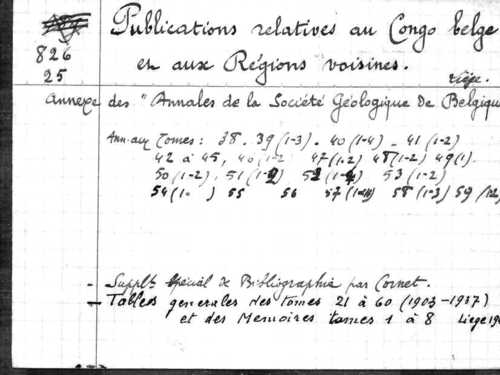 Publications relatives au Congo belge
826
25
et aux Régions voisines.
Liège.
Annexe des "Annales de la Société Géologique De Belgique
Ann. aux Tomes: 38. 39 (1-3). 40 (1-4). 41 (1-2)
42 à 45, 46 (1-2 47 (1-2) 48 (1-2) 49 (1).
50 (1-2), 51 (1-2) 52 (1-4) 53 (1-2)
54 (1- ) 55 56 57 58 (1-3) 59
- Supplt. Spécial de Bibliographie par Cornet.
- Tables generales des tomes 21 à 60 (1903-1937)
et des Memoires tomes 1 à 8 Liege